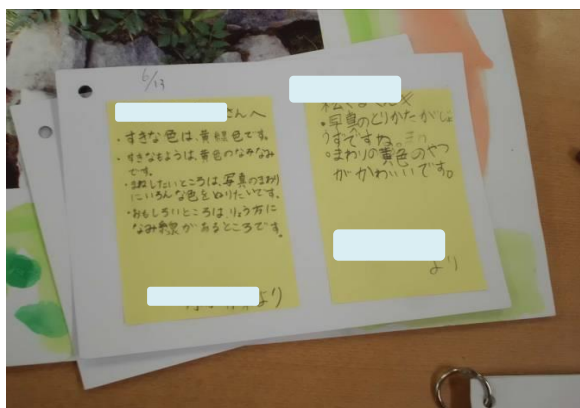 6/13
さんへ
・すきな色は、黄緑色です。
・すきなもようは、黄色のなみなみ
です。
・まねしたいところは、写真のまわり
にいろんな色をぬりたいです。
・おもしろいところは、りょう方に
なみ線があるところです。
より
・写真のとりかたがじょ
うずですね。
・まわりの黄色のやつ
がかわいいです。
より